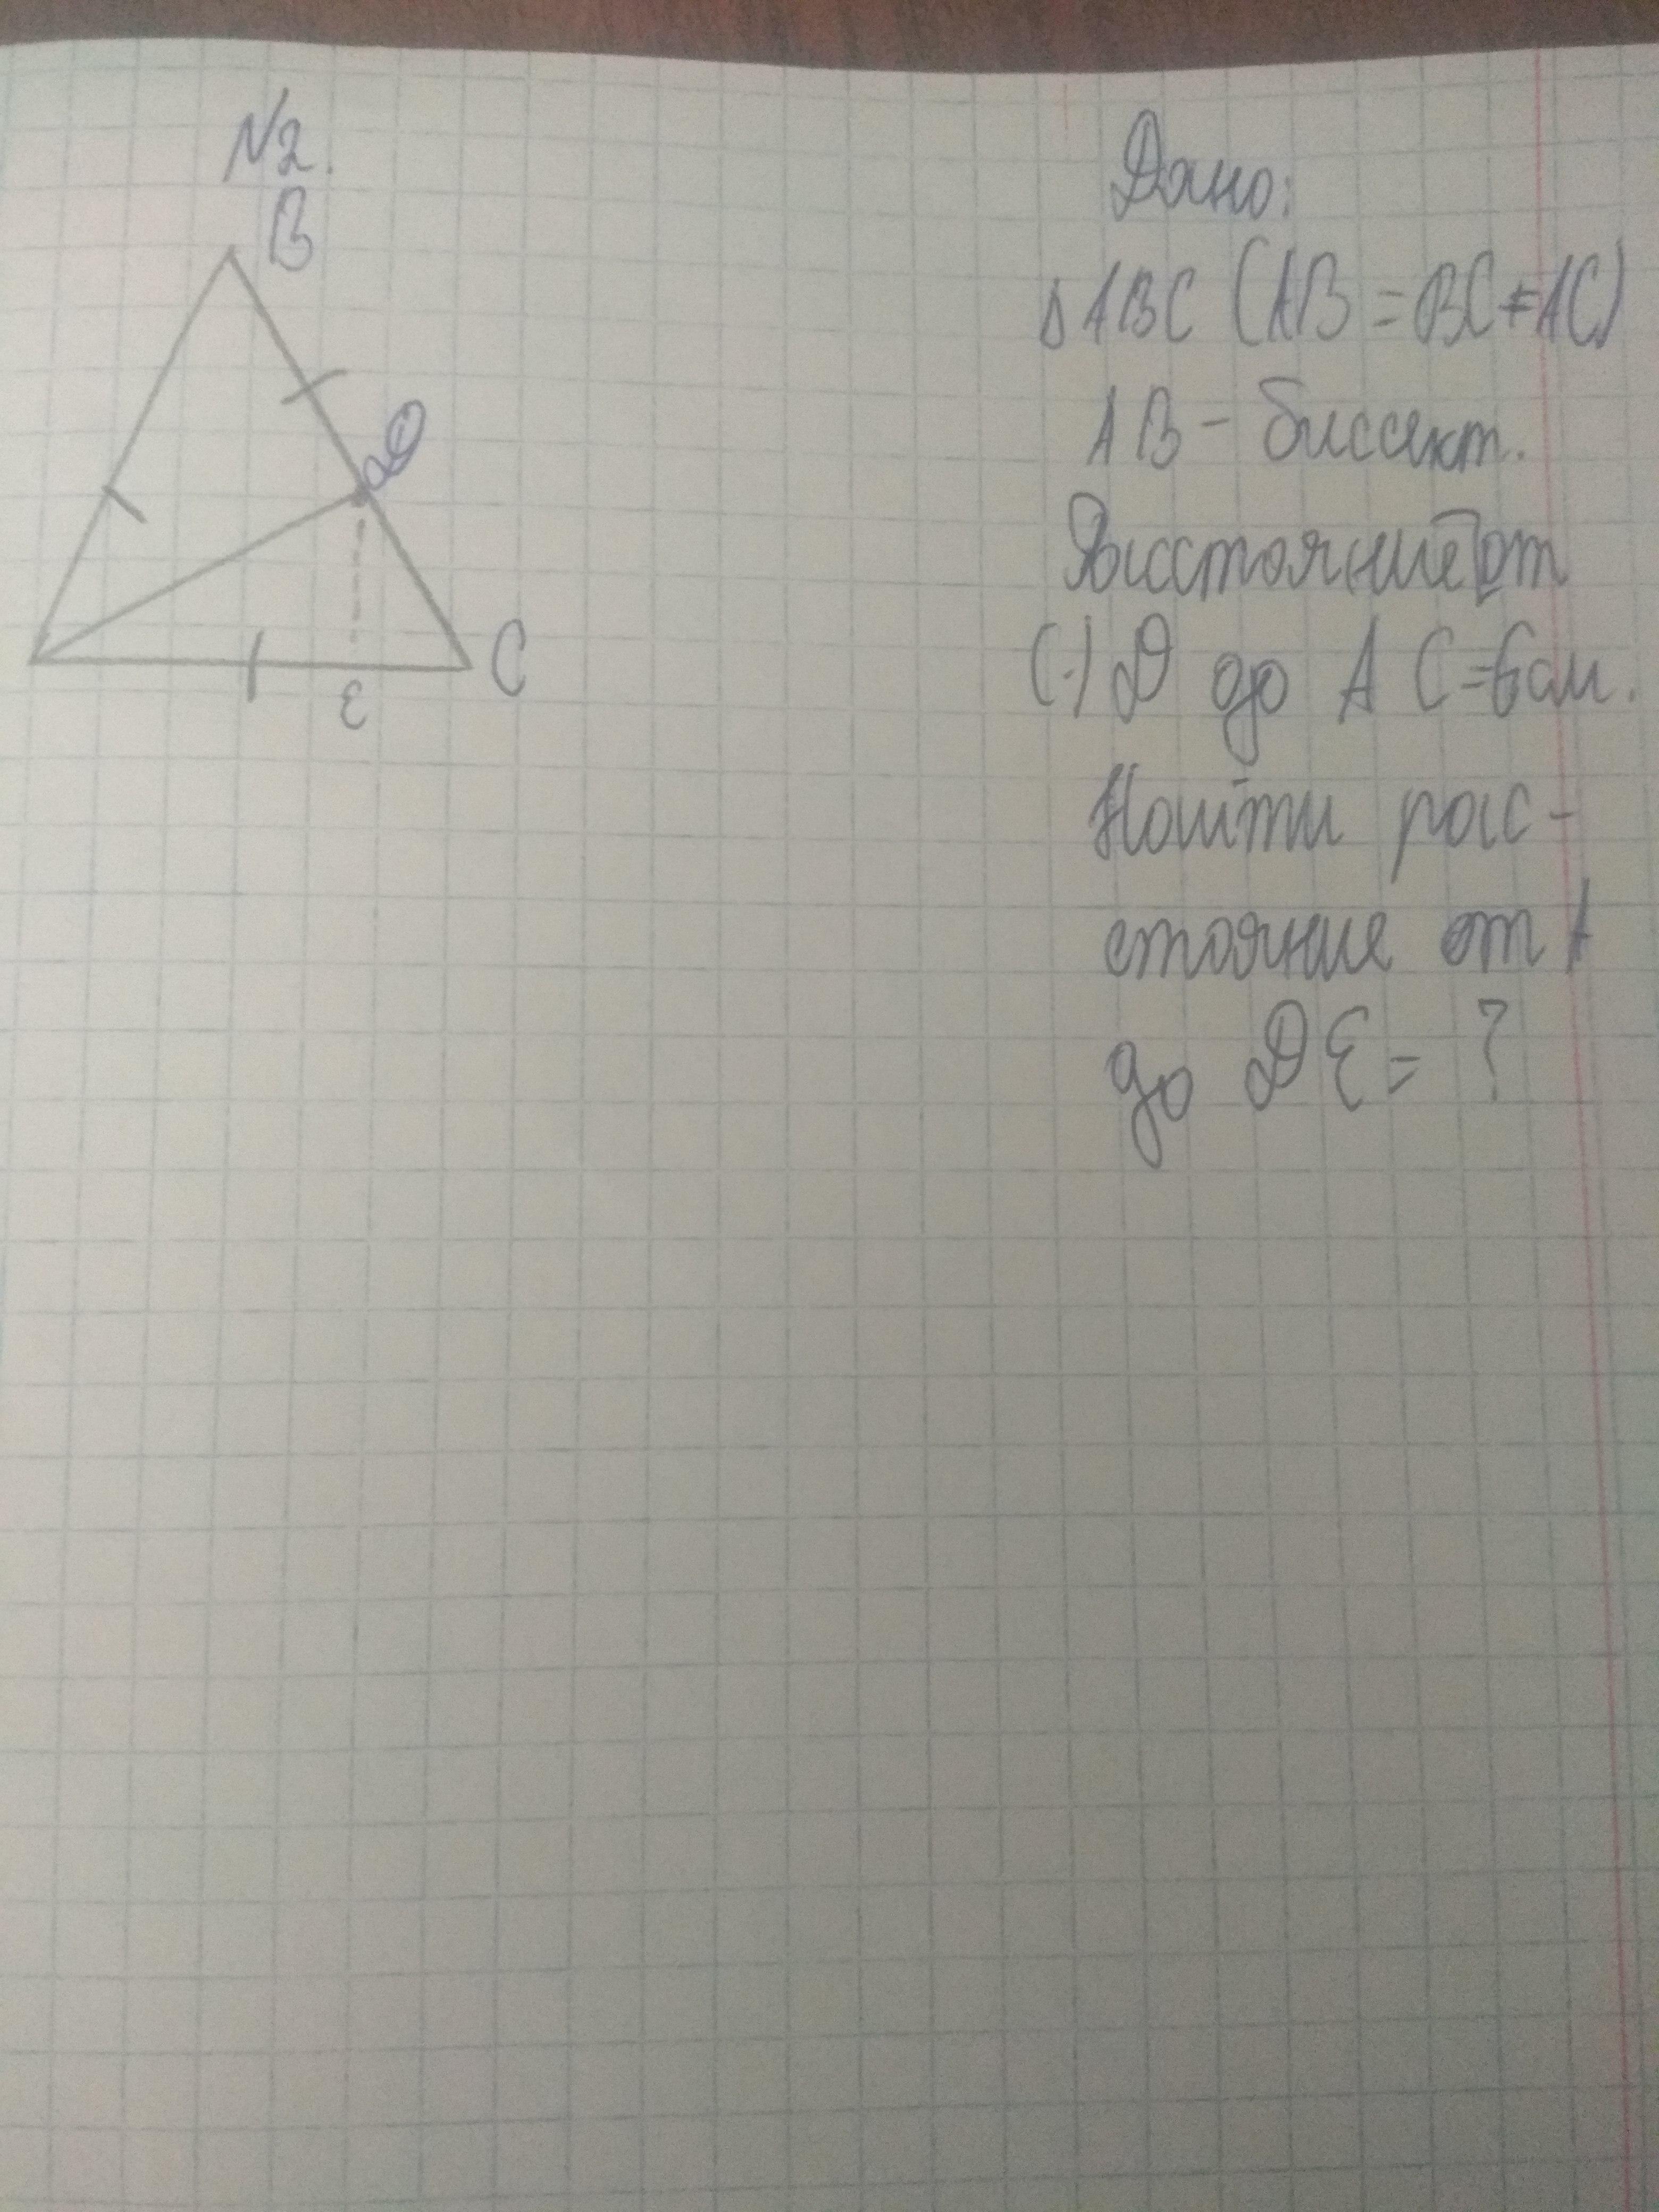 N2.
B
D
C
E
Дано:
Δ ABC (AB = BC = AC)
AB - биссект.
Расстояние от
(·) D до A C = 6 см.
Найти рас-
стояние от A
до DE = ?